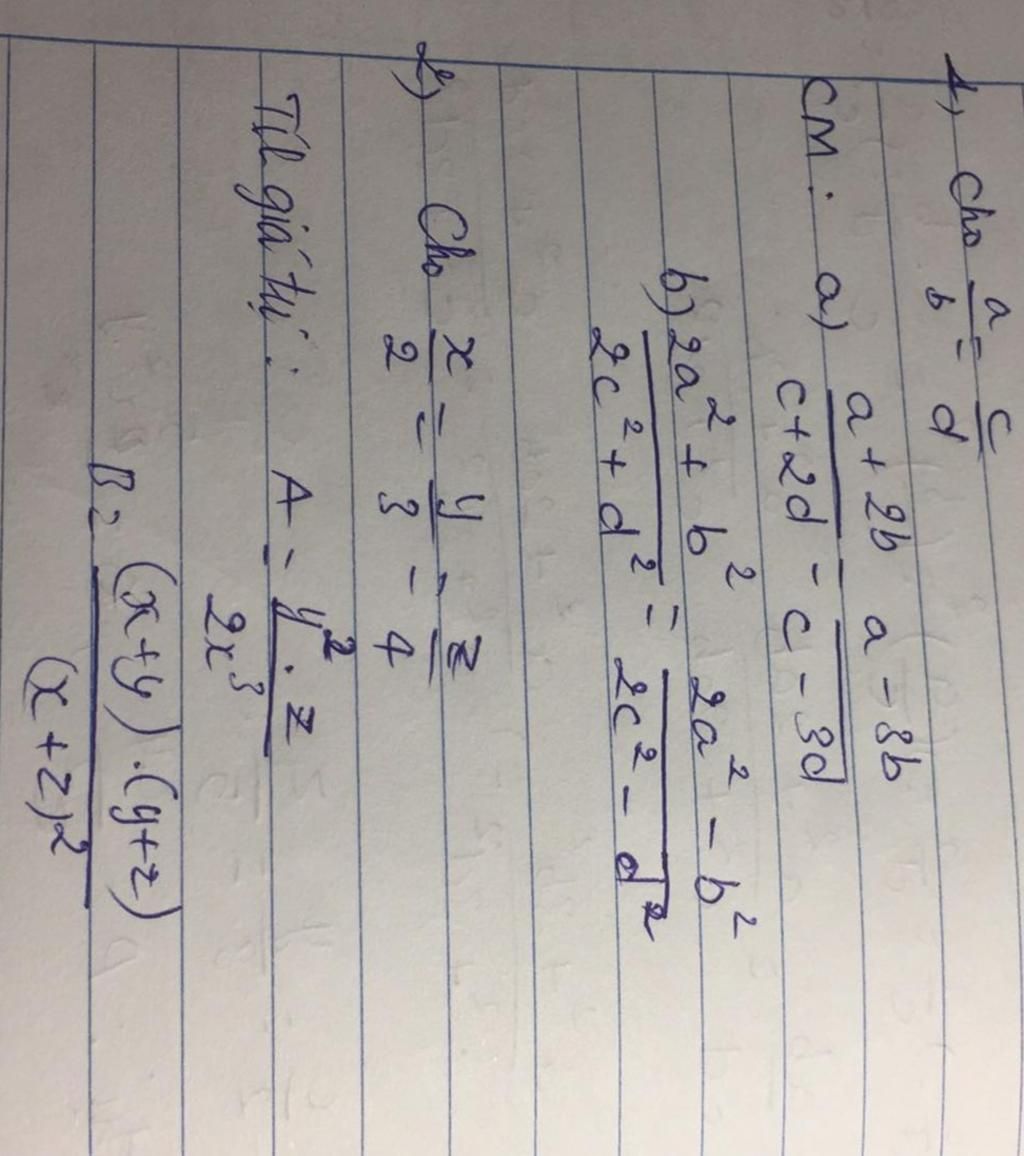 1) Cho a/b = c/d
CM: a) (a + 2b)/(c + 2d) = (a - 3b)/(c - 3d)
b) (2a² + b²)/(2c² + d²) = (2a² - b²)/(2c² - d²)
2) Cho x/2 = y/3 = z/4
giá trị: A = (y².z)/(2x³)
B = ((x+y).(y+z))/(x+z)²